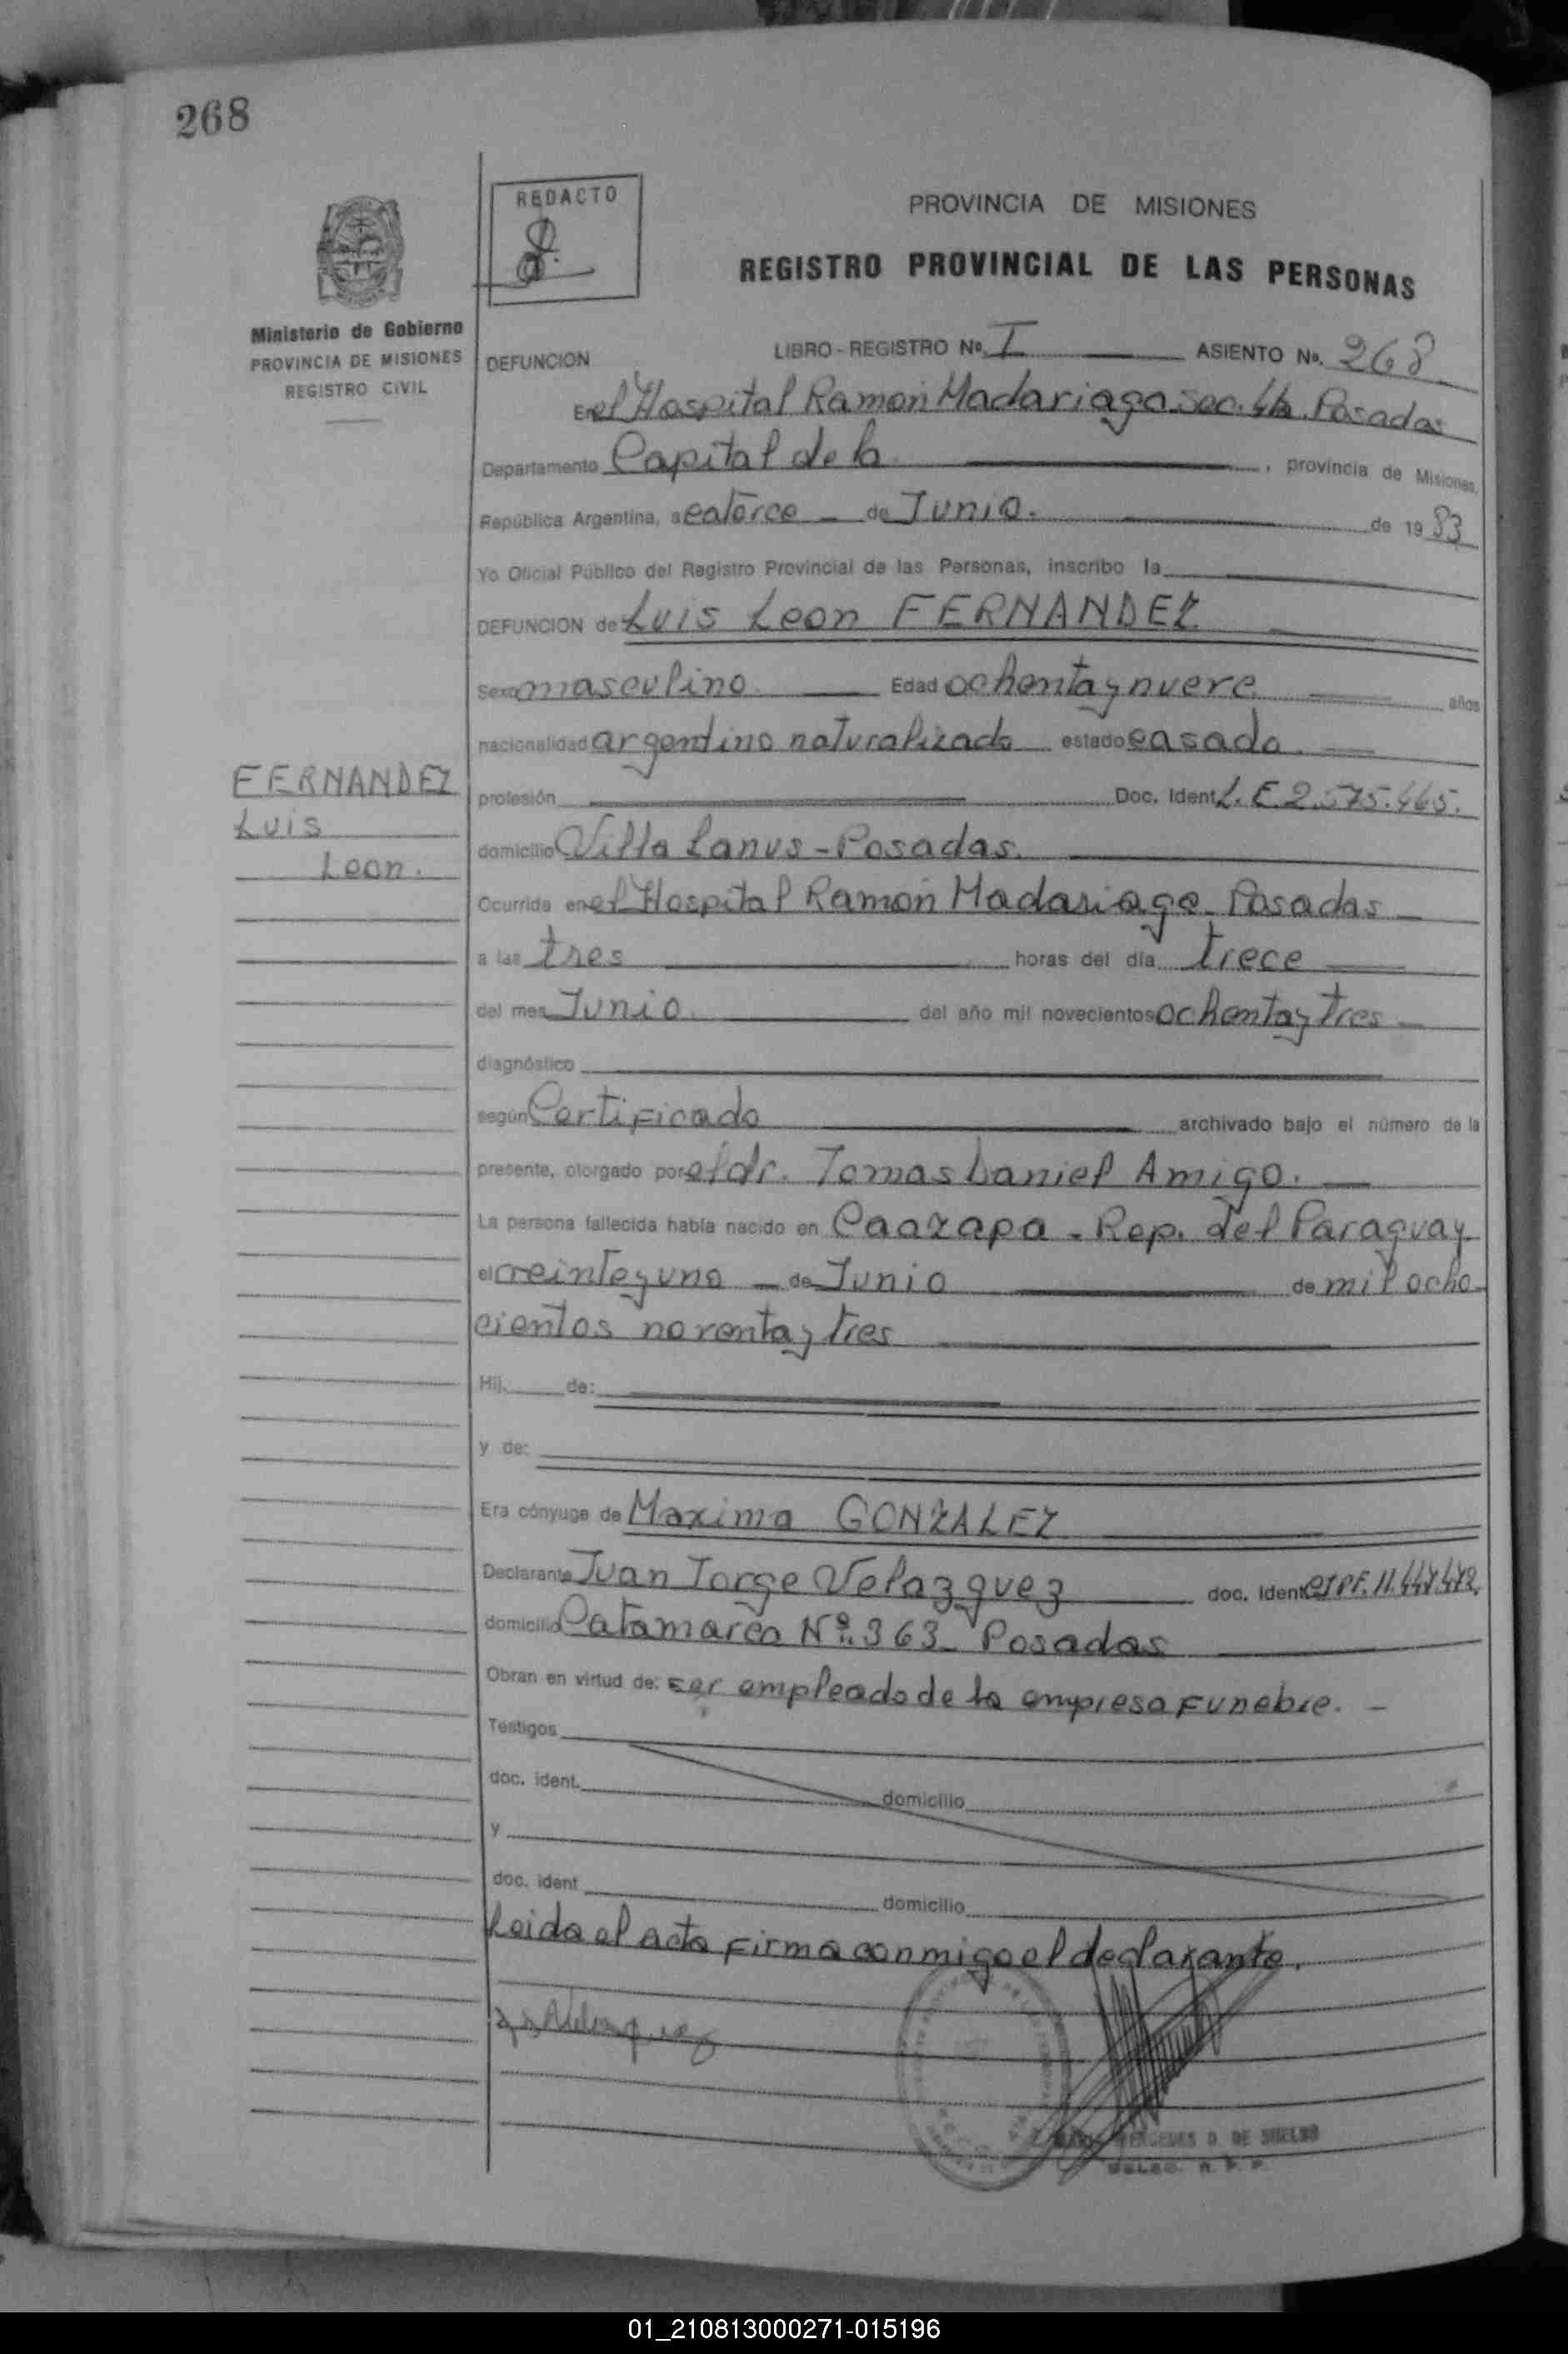 268
REDACTO
PROVINCIA DE MISIONES
REGISTRO PROVINCIAL DE LAS PERSONAS
Ministerio de Gobierno
PROVINCIA DE MISIONES
REGISTRO CIVIL
DEFUNCION LIBRO - REGISTRO No. I ASIENTO No. 268
En el Hospital Ramon Madariaga Sec. 4ta Posadas
Departamento Capital de la , provincia de Misiones,
República Argentina, a catorce de Junio. de 1983
Yo Oficial Público del Registro Provincial de las Personas, inscribo la
DEFUNCION de Luis Leon FERNANDEZ
Sexo masculino Edad ochenta y nueve años
nacionalidad argentino naturalizado estado casado
FERNANDEZ
Luis
Leon.
profesión Doc. Ident. L.E 2.575.465.
domicilio Villa Lanus - Posadas.
Ocurrida en el Hospital Ramon Madariaga - Posadas
a las tres horas del día trece
del mes Junio del año mil novecientos ochenta y tres
diagnóstico
según Certificado archivado bajo el número de la
presente, otorgado por el dr. Tomas Daniel Amigo.
La persona fallecida había nacido en Caazapa - Rep. del Paraguay
el veinte y uno de Junio de mil ocho
cientos noventa y tres
Hij. de:
y de:
Era cónyuge de Maxima GONZALEZ
Declarante Juan Jorge Velazquez doc. Ident.
domicilio Catamarca Nº. 363 - Posadas
Obran en virtud de: ser empleado de la empresa Funebre. -
Testigos
doc. ident. domicilio
y
doc. ident domicilio
Leida el acta Firma conmigo el declarante.
01_210813000271-015196